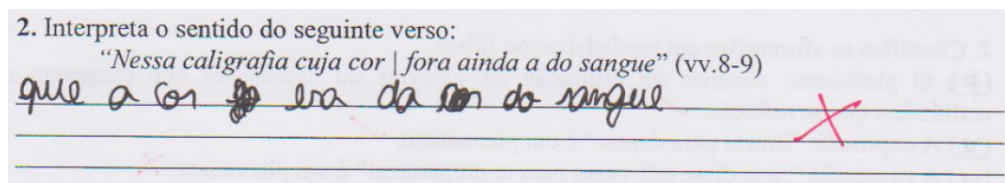 2. Interpreta o sentido do seguinte verso:
"Nessa caligrafia cuja cor | fora ainda a do sangue" (vv.8-9)
que a cor era da cor do sangue